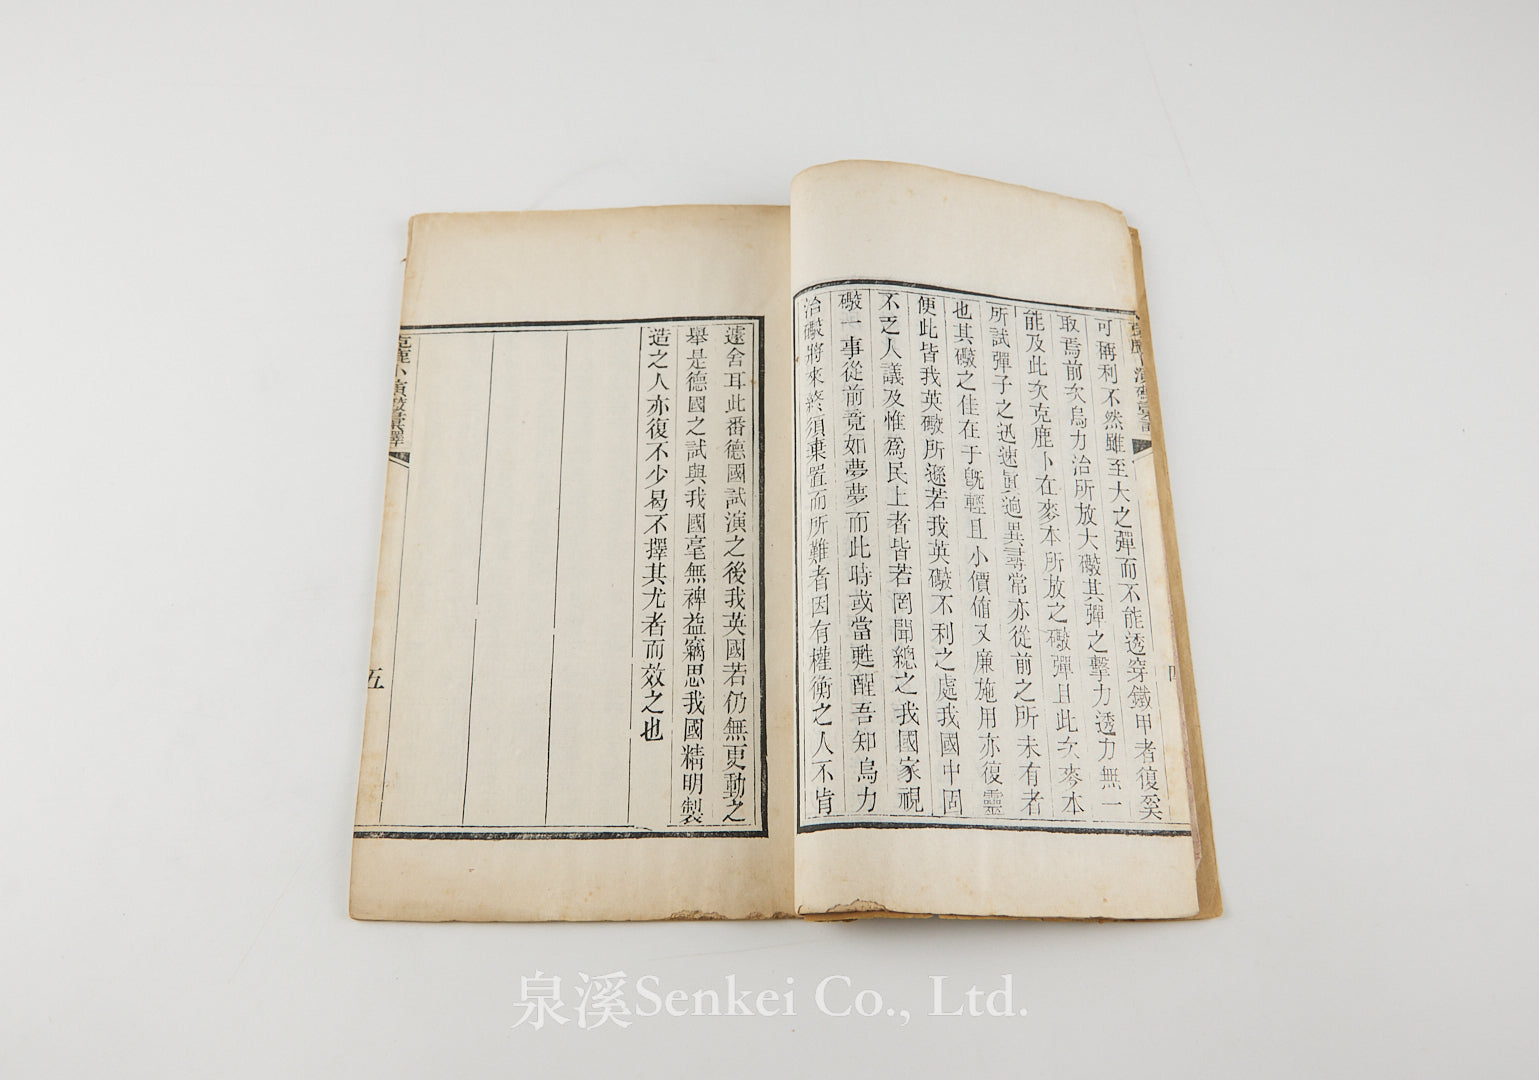 可稱利不然雖至大之彈而不能透穿鐵甲者復奚
取焉前次烏力治所放大礮其彈之擊力透力無一
能及此次克鹿卜在麥本所放之礮彈且此次麥本
所試彈子之迅速眞逈異尋常亦從前之所未有者
也其礮之佳在于旣輕且小價値又廉施用亦復靈
便此皆我英礮所遜若我英礮不利之處我國中固
不乏人議及惟爲民上者皆若罔聞總之我國家視
礮一事從前竟如夢夢而此時或當甦醒吾知烏力
治礮將來終須棄置而所難者因有權衡之人不肯
遽舍耳此番德國試演之後我英國若仍無更動之
舉是德國之試與我國毫無裨益竊思我國精明製
造之人亦復不少曷不擇其尤者而效之也
克鹿卜演礮彙譯
五
泉溪Senkei Co., Ltd.